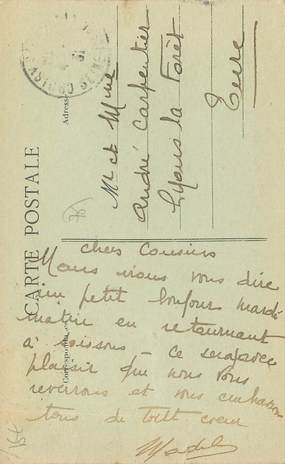 CARTE POSTALE
Correspondance
Adresse
Mr et Mme
André Carpentier
Lyons la Forêt
Eure
chers Cousins
Nous irons vous dire
un petit bonjour mardi
matin en retournant
à soissons ce sera avec
plaisir que nous vous
reverrons et vous embrassons
tous de tout coeur